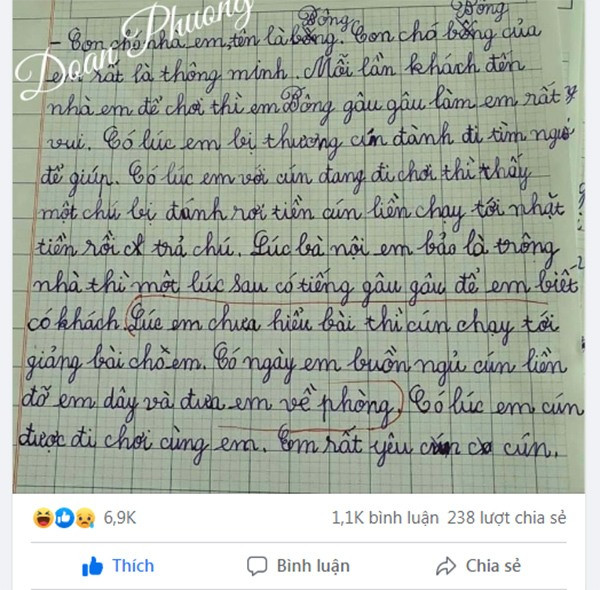 Đoan Phương
Bông Bông
- Con chó nhà em tên là bông. Con chó bông của
em rất là thông minh. Mỗi lần khách đến
nhà em để chơi thì em Bông gâu gâu làm em rất
vui. Có lúc em bị thương cún đành đi tìm người
để giúp. Có lúc em với cún đang đi chơi thì thấy
một chú bị đánh rơi tiền cún liền chạy tới nhặt
tiền rồi trả chú. Lúc bà nội em bảo là trông
nhà thì một lúc sau có tiếng gâu gâu để em biết
có khách. Lúc em chưa hiểu bài thì cún chạy tới
giảng bài cho em. Có ngày em buồn ngủ cún liền
đỡ em dây và đưa em về phòng. Có lúc em cún
được đi chơi cùng em. Em rất yêu cún.
6,9K 1,1K bình luận 238 lượt chia sẻ
Thích Bình luận Chia sẻ